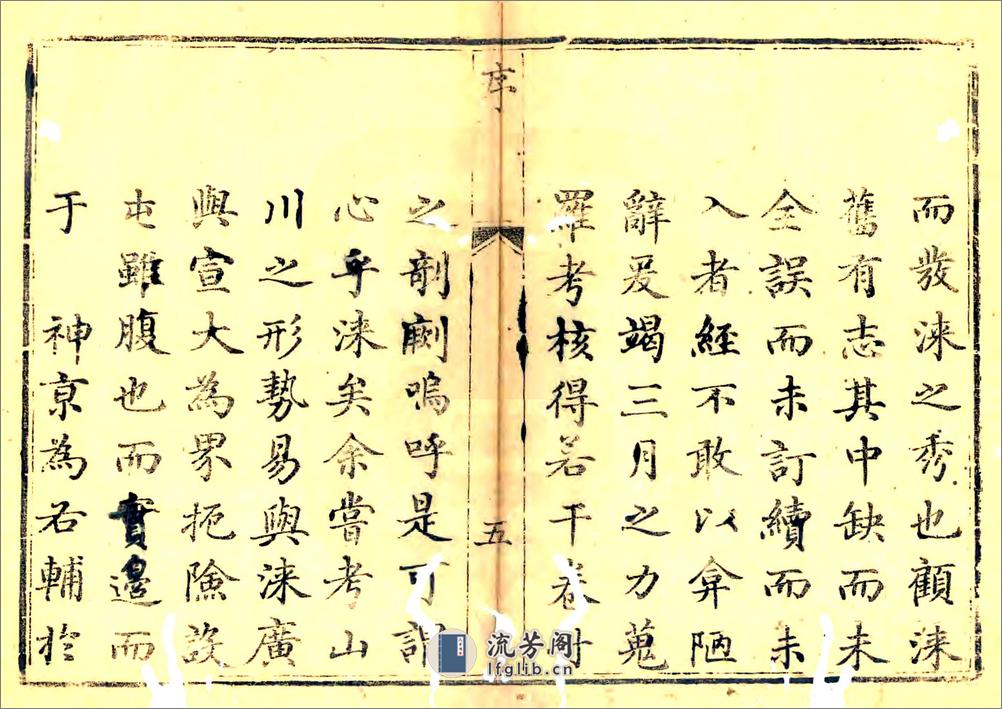 而發淶之秀也顧淶
舊有志其中缺而未
全誤而未訂續而未
入者經不敢以弇陋
辭爰竭三月之力蒐
羅考核得若干卷付
序
五
之剞劂嗚呼是可謂
心乎淶矣余嘗考山
川之形勢易與淶廣
與宣大為界扼險設
屯雖腹也而實邊而
于 神京為右輔於
流芳阁
lfglib.cn